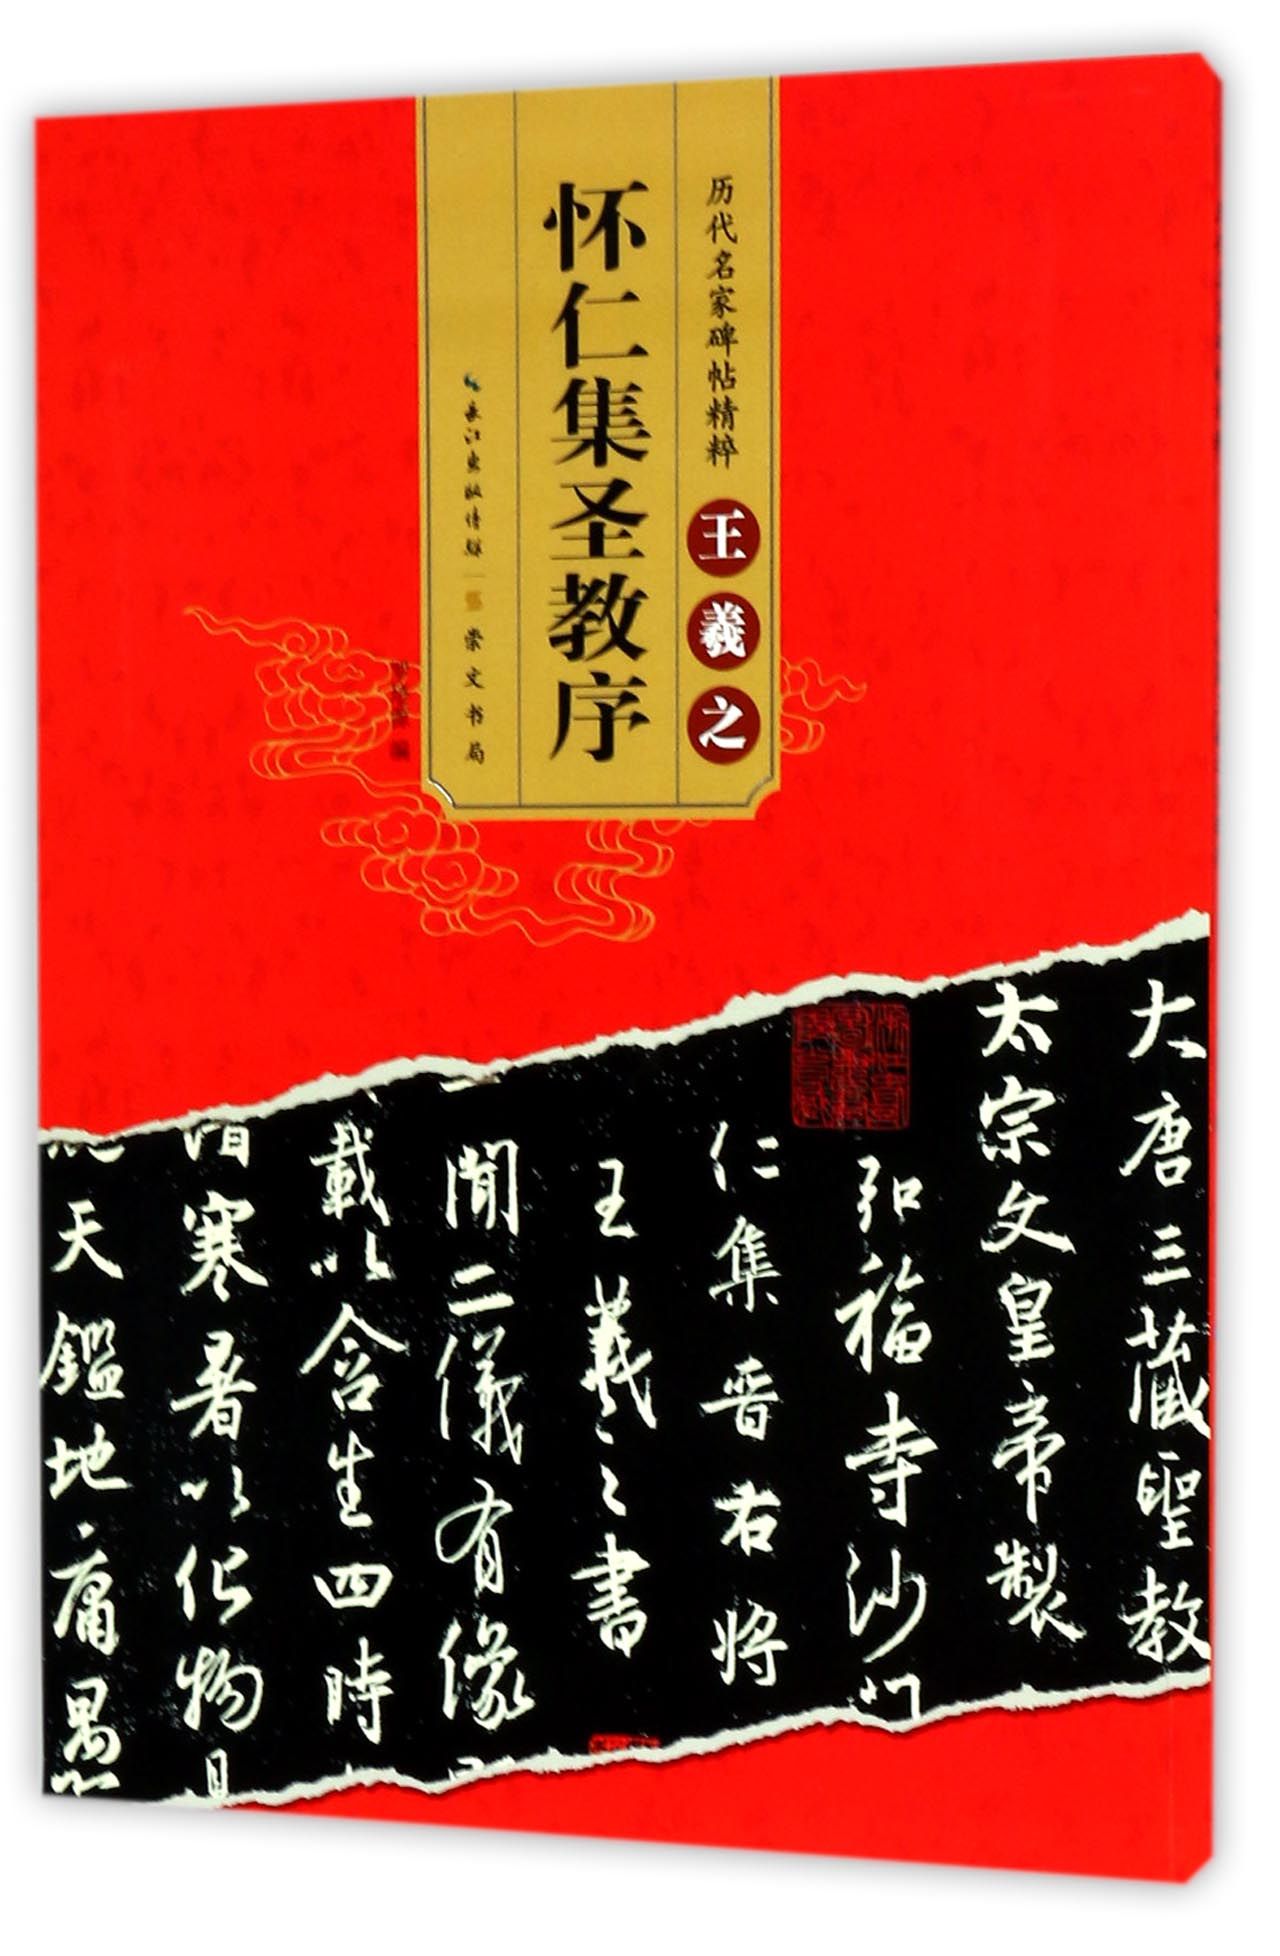 历代名家碑帖精粹
王羲之
怀仁集圣教序
长江出版传媒
崇文书局
编
大唐三藏聖教
太宗文皇帝製
弘福寺沙门
仁集晋右将
王羲之書
聞二儀有像
載以含生四時
潛寒暑以化物
天鑑地庸愚